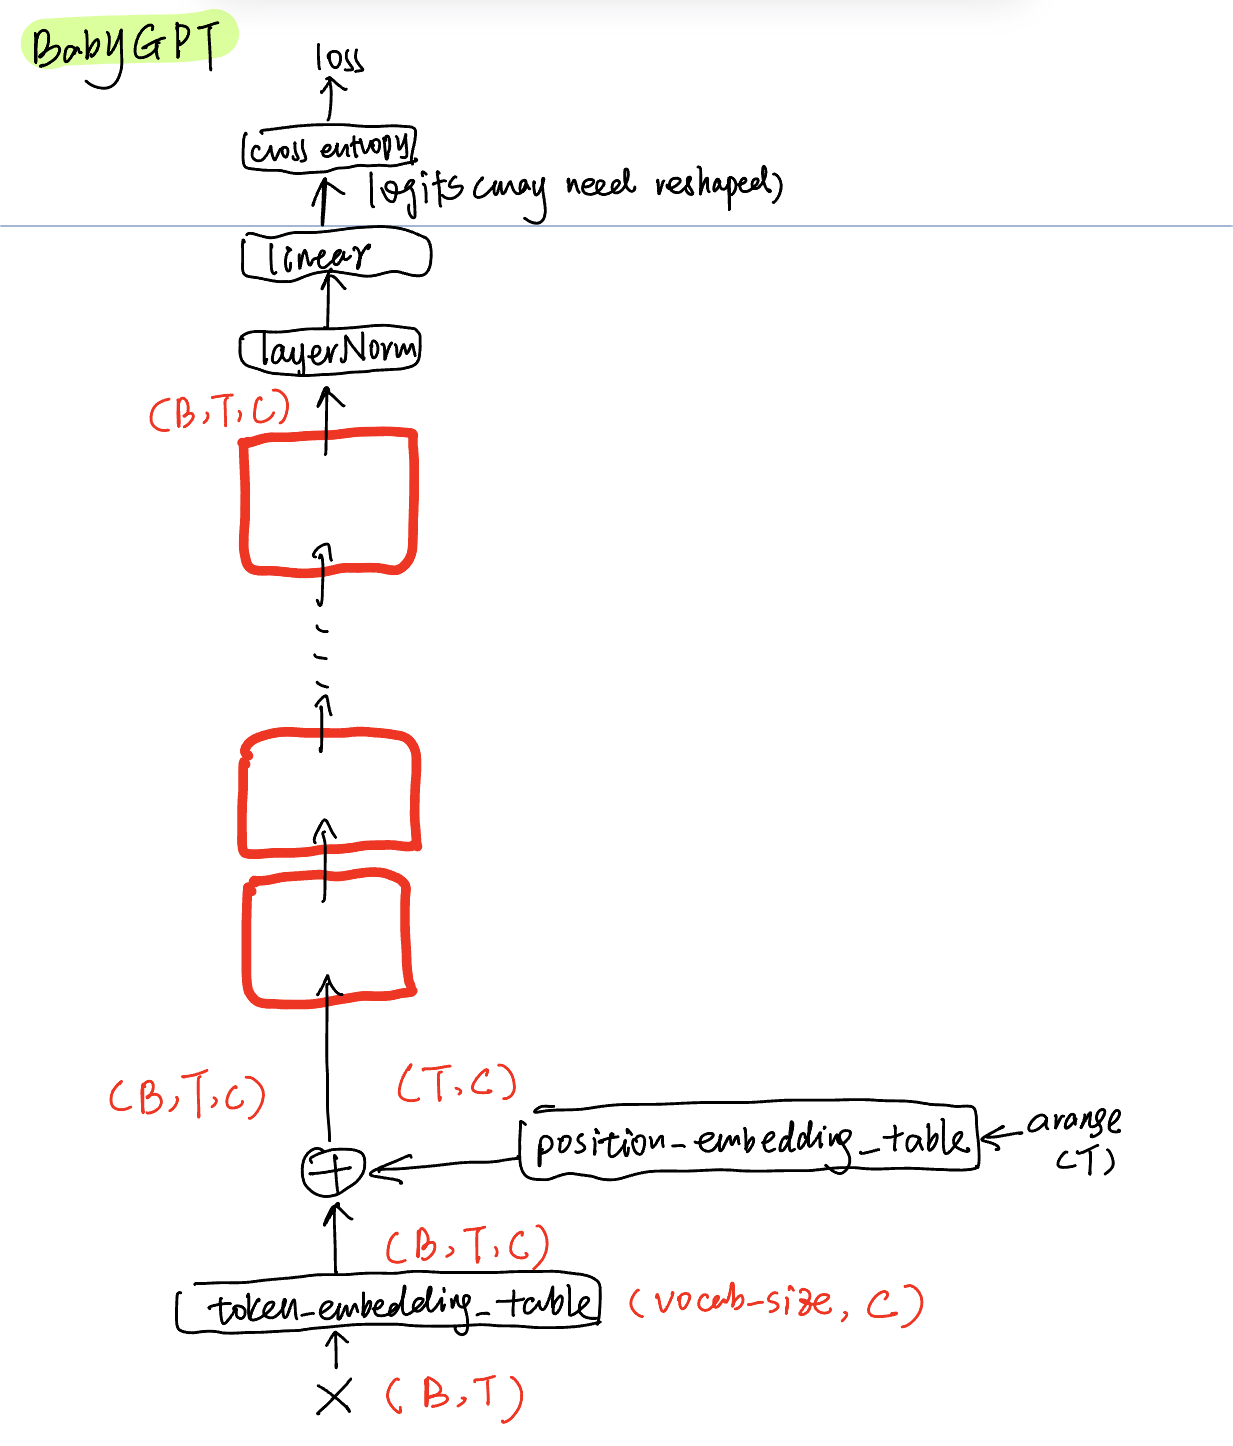 BabyGPT
loss
cross entropy
logits (may need reshaped)
linear
layerNorm
(B,T,C)
(B,T,C)
(T,C)
position_embedding_table
arange
(T)
(B,T,C)
token_embedding_table
(vocab-size, C)
X (B,T)